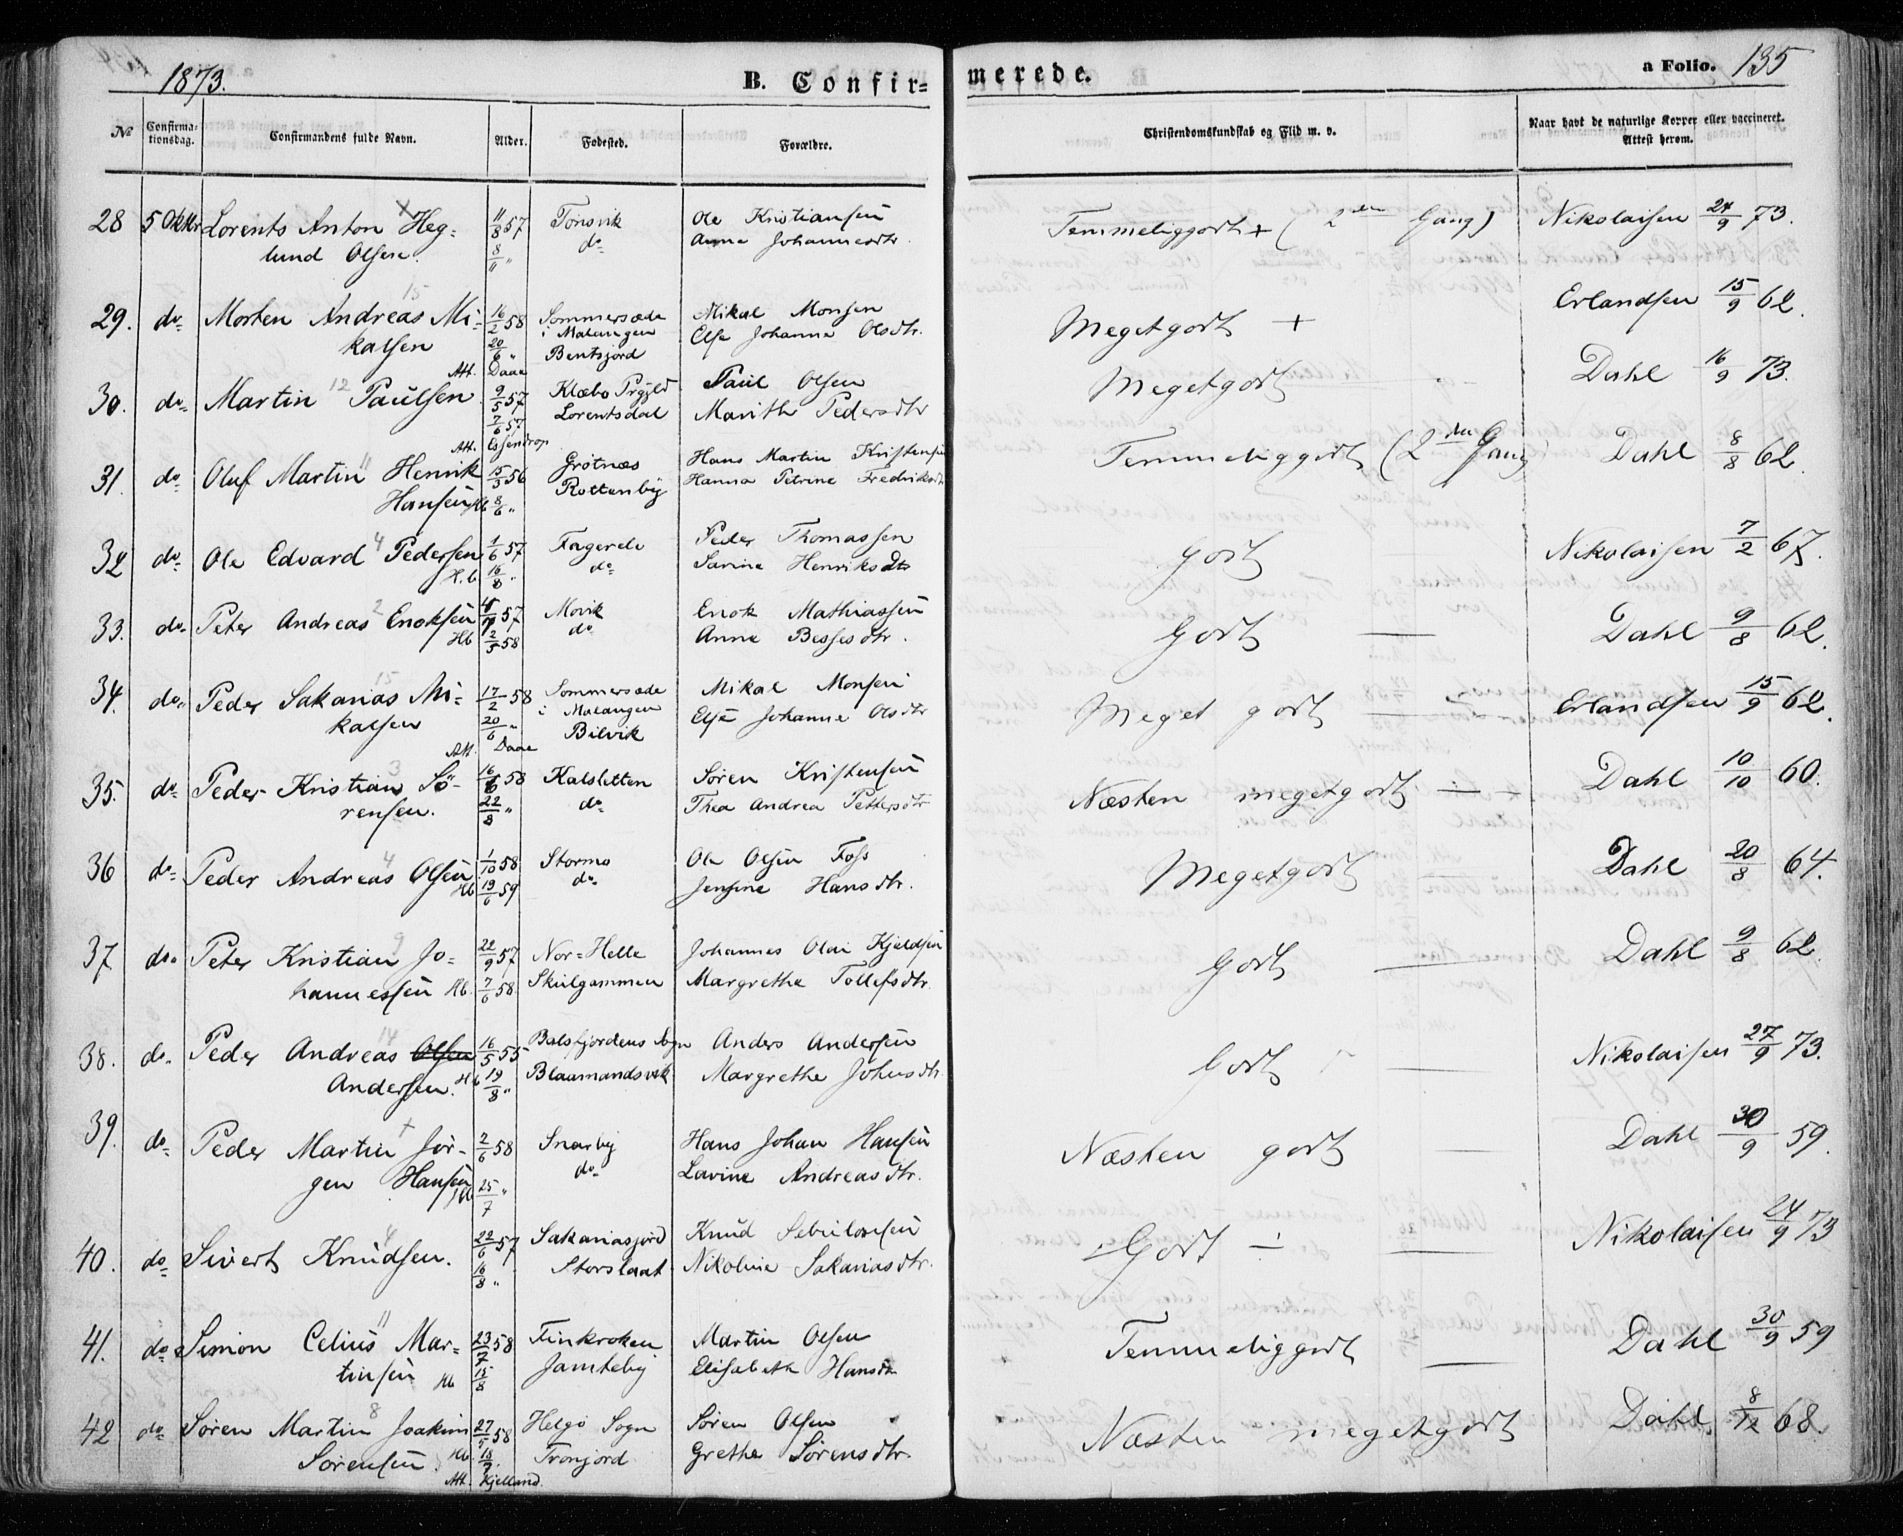 1873.
B. Confir-
merede.
a Folio. 135
No
Confirma-
tionsdag.
Confirmandens fulde Navn.
Alder.
Fødested.
Forældre.
Christendomskundskab og Flid m. v.
Naar havt de naturlige Kopper eller vaccineret.
Attest herom.
28 5 Oktbr Lorents Anton Heg- 11/8 57 Tonsvik Ole Kristiansen Temmeliggodt + (2den Gang) Nikolaisen 24/9 73.
lund Olsen. 8/11 " do Anna Johannesdtr.
29. do Morten Andreas Mi- 16/2 58 Sommersæde Mikal Monsen Megetgodt + Erlandsen 15/9 62.
15
kalsen 20/6 " i Malangen Else Johanna Olsdtr.
Att. Daae Bentsjord
30. do Martin Paulsen 9/5 57 Klæbo Prgjld Paul Olsen Megetgodt Dahl 16/9 73.
12
7/6 57 Lorentsdal Marith Pedersdtr
Att. Essendrop
31. do Oluf Martin Henrik 15/3 56 Grötnæs Hans Martin Kristensen Temmeliggodt (2den Gang) Dahl 8/8 62.
11
Hansen Hb 8/6 " Rottenby Hanna Petrine Fredriksdtr
32 do Ole Edvard Pedersen 1/6 57 Fagerele Peder Thomassen Godt Nikolaisen 7/2 67.
4
H.b 16/8 " do Sarine Henriksdtr
33. do Peter Andreas Enoksen 57 Movik Enok Mathiassen Godt Dahl 9/8 62.
2
Hb 2/5 58 do Anne Bessesdtr.
34. do Peder Sakarias Mi- 17/2 58 Sommersæde Mikal Monsen Meget godt Erlandsen 15/9 62.
15
kalsen 20/6 " i Malangen Else Johanne Olsdtr
Att. Daae Bilvik
35. do Peder Kristian Sö- 16/6 58 Kalsletten Sören Kristensen Næsten megetgodt Dahl 10/10 60.
3
rensen. 22/8 " do Thea Andrea Pettersdtr
36 do Peder Andreas Olsen 1/10 58 Stormo Ole Olsen Foss Megetgodt Dahl 20/8 64.
4
Hb 19/6 59 do Jensine Hansdtr.
37 do Peter Kristian Jo- 22/9 57 Nor=Helle Johannes Olai Kjeldsen Godt Dahl 9/8 62.
9
hannessen Hb. 7/6 58. Skulgammen Margrethe Tollefsdtr.
38. do Peder Andreas Olsen 16/5 55 Balsfjordens Sogn Anders Andersen Godt Nikolaisen 27/9 73.
14
Andersen. Hb 19/8 " Blaamandsvik Margrethe Johnsdtr.
39. do Peder Martin Jör- 2/6 58 Snarby Hans Johan Hansen Næsten godt Dahl 30/9 59.
gen Hansen Hb 25/7 " do Lavine Andreasdtr.
40. do Sivert Knudsen. 22/6 57 Sakariasjord Knud Godt Nikolaisen 24/9 73
4
16/8 " Storslaat Nikoline Sakariasdtr.
41. do Simon Celius Mar- 23/7 58 Finkroken Martin Olsen Temmeliggodt Dahl 30/9 59
11
tinsen Hb 15/8 Jamteby Elisabeth Hansdtr
42 do Sören Martin Joakim 58 Helgö Sogn Sören Olsen Næsten megetgodt Dahl 8/12 68
8
Sörensen Hb. 18/7. Tronjord Grethe Sörensdtr.
Att. Kjelland.